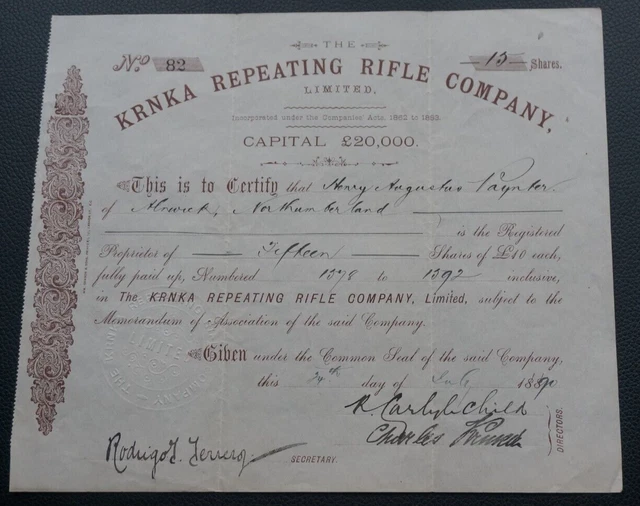 THE
No. 82
15 Shares.
KRNKA REPEATING RIFLE COMPANY,
LIMITED,
Incorporated under the Companies' Acts, 1862 to 1893.
CAPITAL £20,000.
This is to Certify that Henry Augustus Paynter
of Alnwick, Northumberland
is the Registered
Proprietor of Fifteen Shares of £10 each,
fully paid up, Numbered 1378 to 1392 inclusive,
in The KRNKA REPEATING RIFLE COMPANY, Limited, subject to the
Memorandum of Association of the said Company.
Given under the Common Seal of the said Company,
this 24th day of July 18
R Carlyle Child
Charles
DIRECTORS.
Rodrigo
SECRETARY.